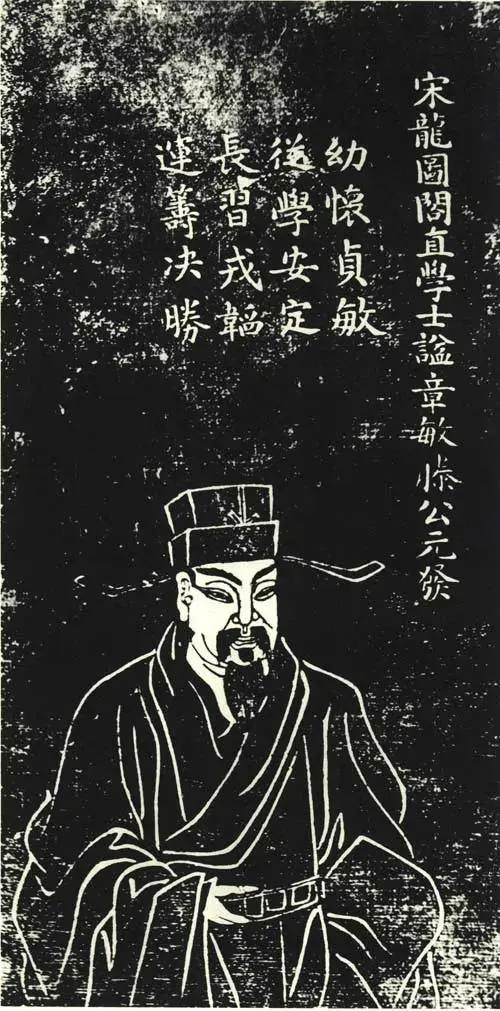 宋龍圖閣直學士謚章敏滕公元發
幼懷貞敏
從學安定
長習戎韜
運籌决勝